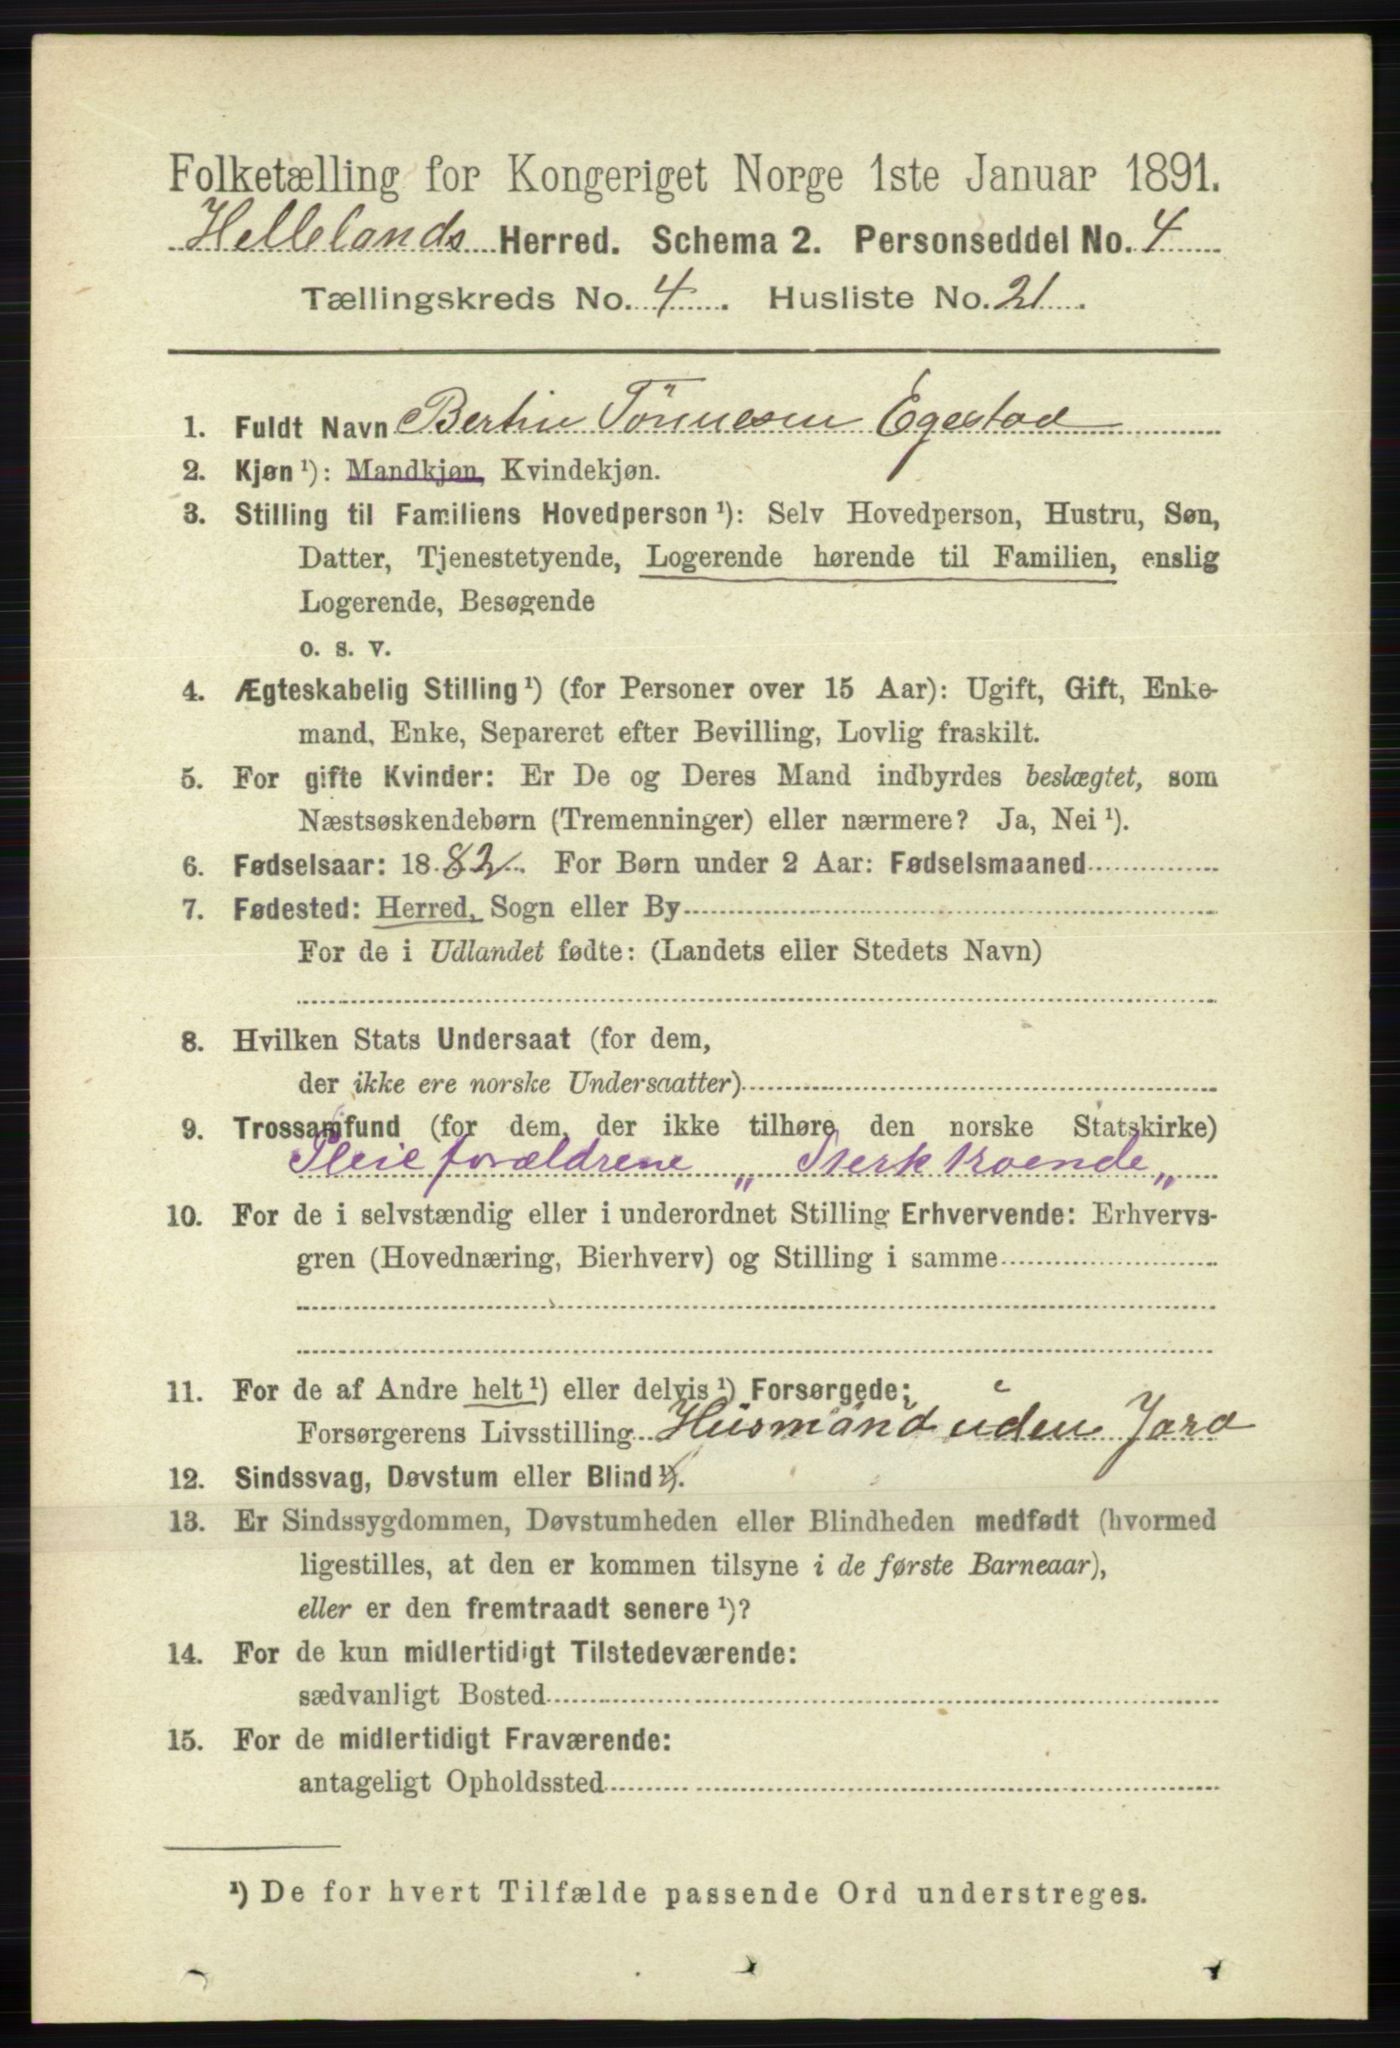 Folketælling for Kongeriget Norge 1ste Januar 1891.
Hellelands Herred. Schema 2. Personseddel No. 4
Tællingskreds No. 4. Husliste No. 21.
1. Fuldt Navn Bertin Tönnesen Egestad
2. Kjøn ¹): Mandkjøn, Kvindekjøn.
3. Stilling til Familiens Hovedperson ¹): Selv Hovedperson, Hustru, Søn,
Datter, Tjenestetyende, Logerende hørende til Familien, enslig
Logerende, Besøgende
o. s. v.
4. Ægteskabelig Stilling ¹) (for Personer over 15 Aar): Ugift, Gift, Enke-
mand, Enke, Separeret efter Bevilling, Lovlig fraskilt.
5. For gifte Kvinder: Er De og Deres Mand indbyrdes beslægtet, som
Næstsøskendebørn (Tremenninger) eller nærmere? Ja, Nei ¹).
6. Fødselsaar: 1882. For Børn under 2 Aar: Fødselsmaaned
7. Fødested: Herred, Sogn eller By
For de i Udlandet fødte: (Landets eller Stedets Navn)
8. Hvilken Stats Undersaat (for dem,
der ikke ere norske Undersaatter)
9. Trossamfund (for dem, der ikke tilhøre den norske Statskirke)
Pleieforældrene „Sterktroende„
10. For de i selvstændig eller i underordnet Stilling Erhvervende: Erhvervs-
gren (Hovednæring, Bierhverv) og Stilling i samme
11. For de af Andre helt ¹) eller delvis ¹) Forsørgede;
Forsørgerens Livsstilling Husmand uden Jord
12. Sindssvag, Døvstum eller Blind ¹).
13. Er Sindssygdommen, Døvstumheden eller Blindheden medfødt (hvormed
ligestilles, at den er kommen tilsyne i de første Barneaar),
eller er den fremtraadt senere ¹)?
14. For de kun midlertidigt Tilstedeværende:
sædvanligt Bosted
15. For de midlertidigt Fraværende:
antageligt Opholdssted
¹) De for hvert Tilfælde passende Ord understreges.